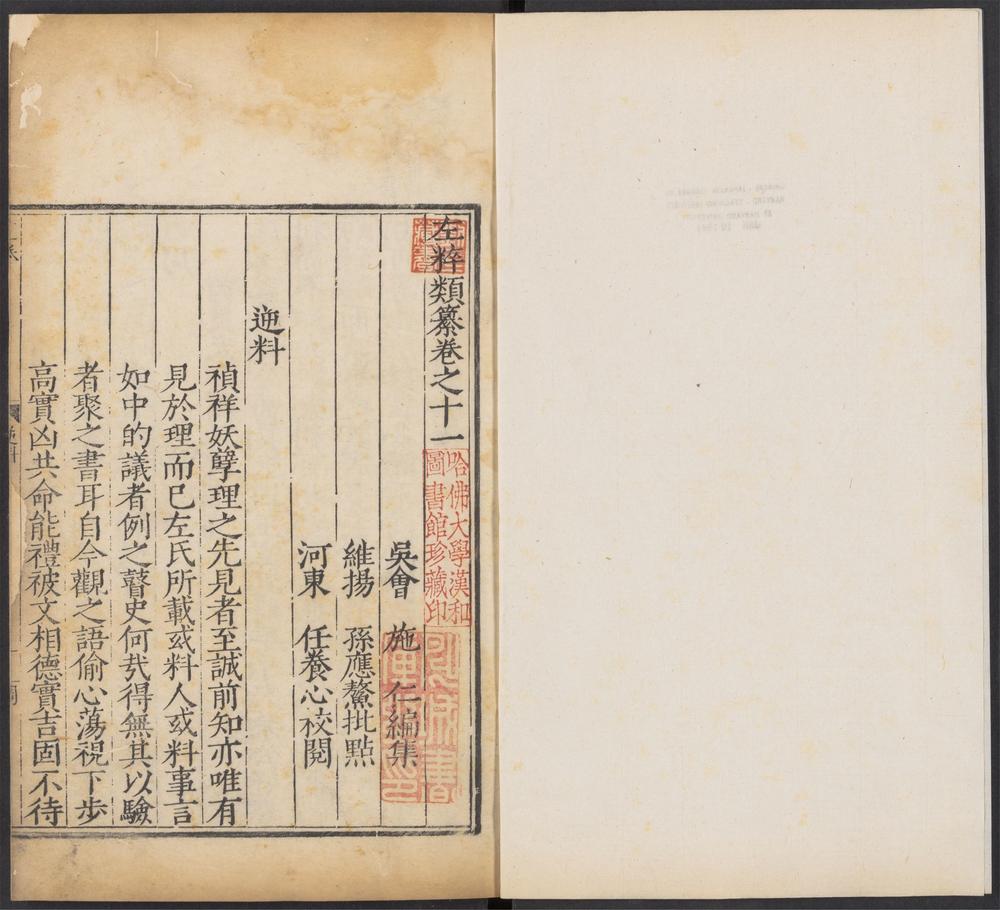 左粹類纂卷之十一
哈佛大學漢和
圖書館珍藏印
吳會 施 仁編集
維揚 孫應鰲批點
河東 任養心校閱
迊料
禎祥妖孽理之先見者至誠前知亦唯有
見於理而已左氏所載或料人或料事言
如中的議者例之瞽史何㢤得無其以驗
者聚之書耳自今觀之語偷心蕩視下步
高實凶共命能禮被文相德實吉固不待